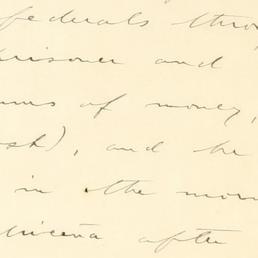 federals thro
risoner and
ums of money,
st), and he
in the morn
after